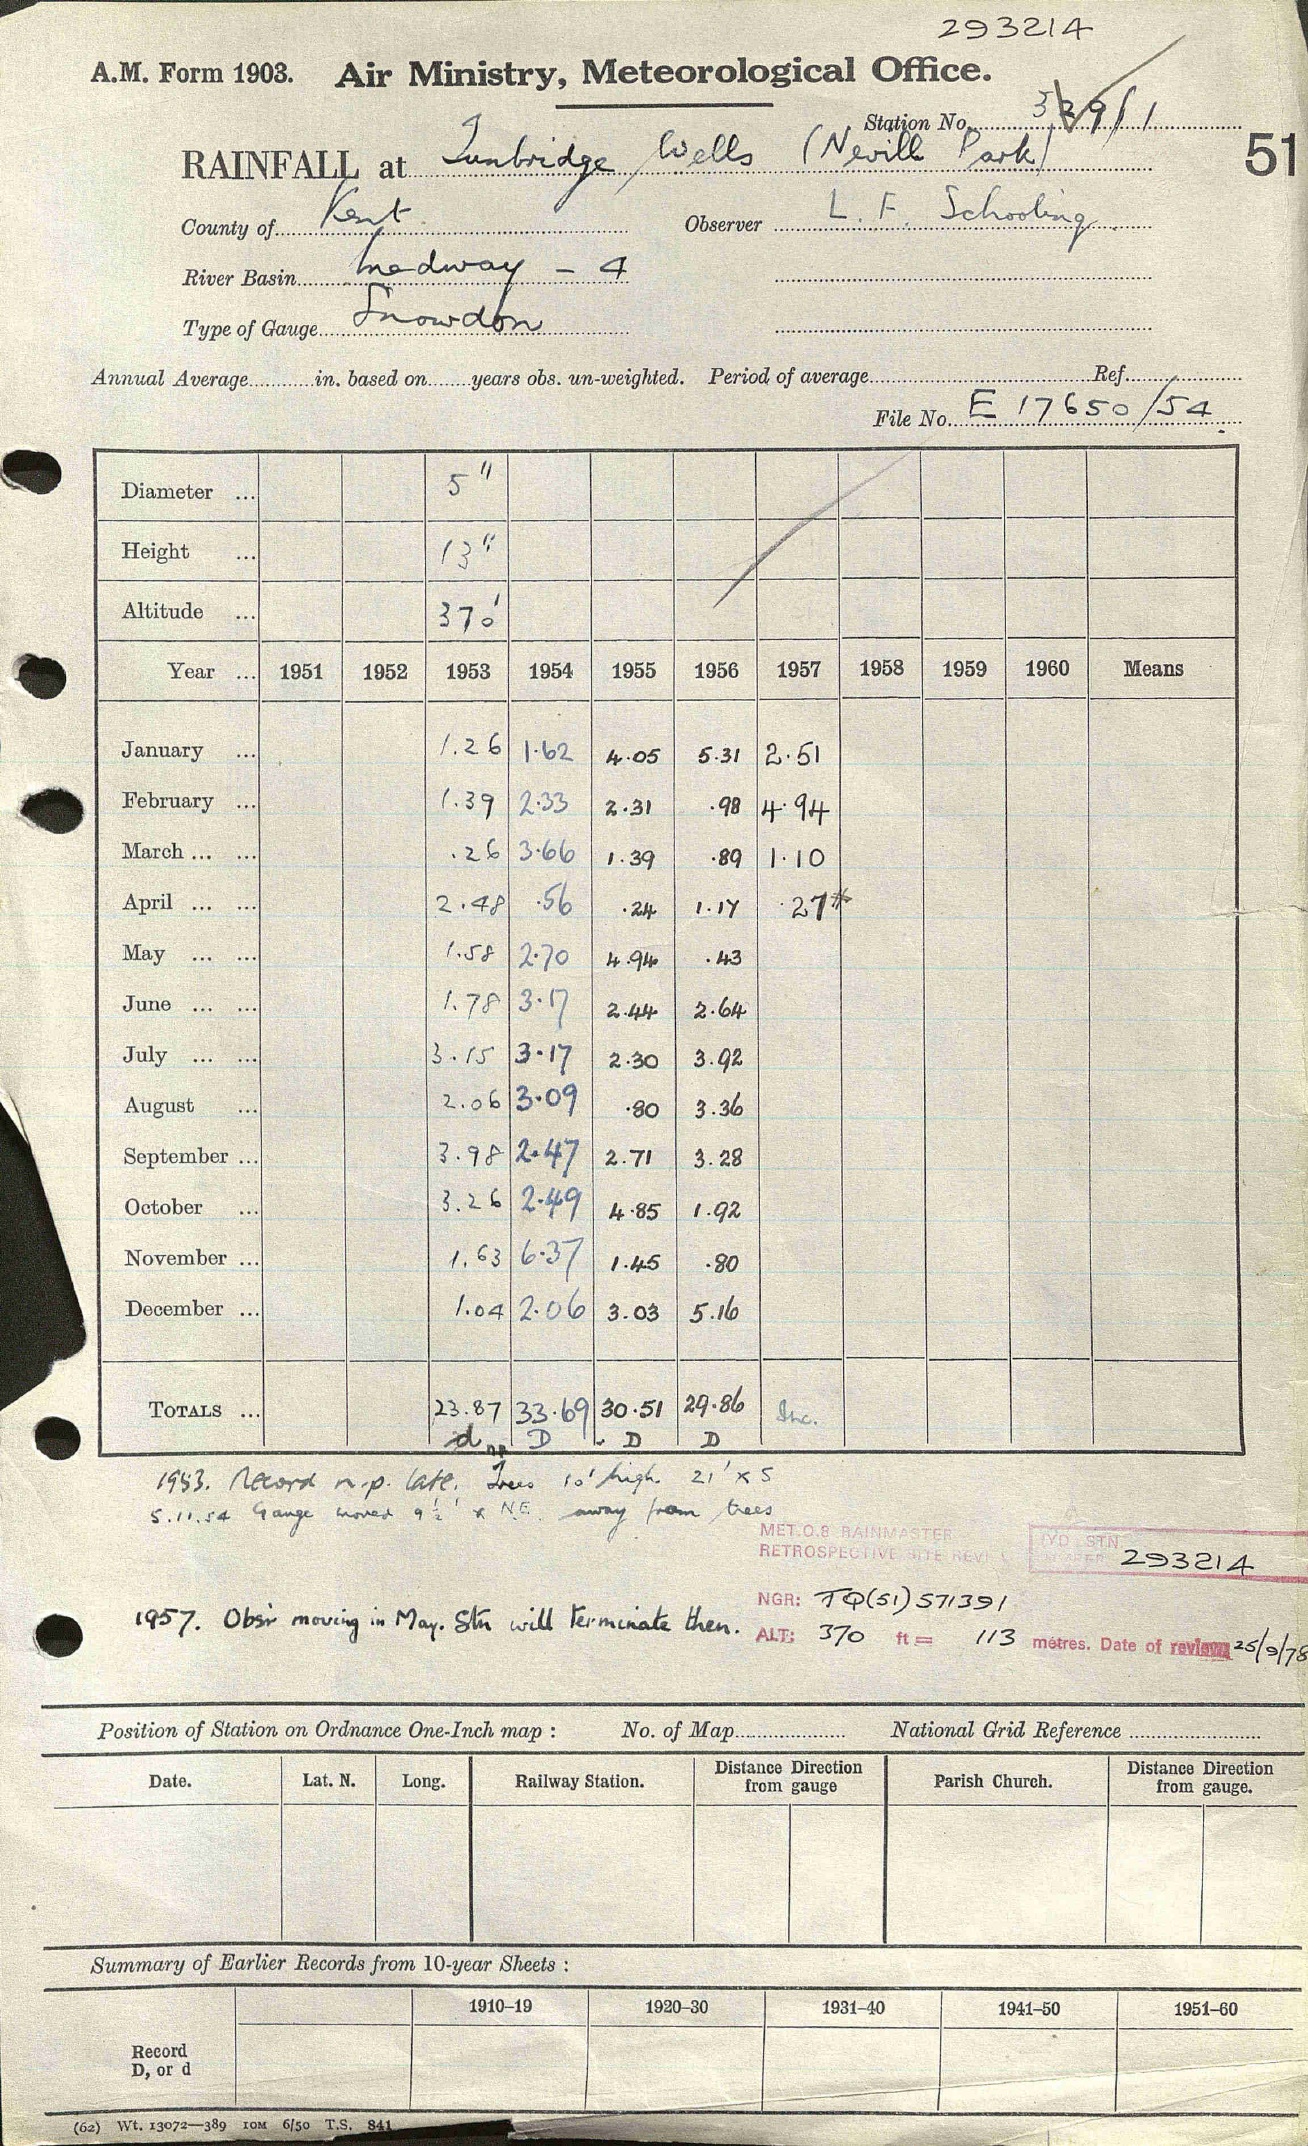 293214
A.M. Form 1903. Air Ministry, Meteorological Office.
Station No. 329/1
RAINFALL at Tunbridge Wells (Nevill Park) 51
County of Kent Observer L. F. Schooling
River Basin Medway - 4
Type of Gauge Snowdon
Annual Average in. based on years obs. un-weighted. Period of average Ref.
File No. E 17650/54
Diameter ... 5"
Height ... 13"
Altitude ... 370'
Year ... 1951 1952 1953 1954 1955 1956 1957 1958 1959 1960 Means
January ... 1.26 1.62 4.05 5.31 2.51
February ... 1.39 2.33 2.31 .98 4.94
March ... ... .26 3.66 1.39 .89 1.10
April ... ... 2.48 .56 .24 1.17 .27*
May ... ... 1.58 2.70 4.94 .43
June ... ... 1.78 3.17 2.44 2.64
July ... ... 3.15 3.17 2.30 3.92
August ... 2.06 3.09 .80 3.36
September ... 3.98 2.47 2.71 3.28
October ... 3.26 2.49 4.85 1.92
November ... 1.63 6.37 1.45 .80
December ... 1.04 2.06 3.03 5.16
TOTALS ... 23.87 33.69 30.51 29.86 Inc.
d np D D D
1953. Record n.p. late. Trees 10' high. 21' x S
5.11.54 Gauge moved 9½' x NE. away from trees
MET.O.8 RAINMASTER
RETROSPECTIVE SITE REVIEW
STN 293214
NGR: TQ(51)571391
1957. Obsr moving in May. Stn will terminate then.
ALT: 370 ft = 113 metres. Date of review 25/9/78
Position of Station on Ordnance One-Inch map : No. of Map National Grid Reference
Date. Lat. N. Long. Railway Station. Distance Direction from gauge Parish Church. Distance Direction from gauge.
Summary of Earlier Records from 10-year Sheets :
1910–19 1920–30 1931–40 1941–50 1951–60
Record
D, or d
(62) Wt. 13072—389 10M 6/50 T.S. 841